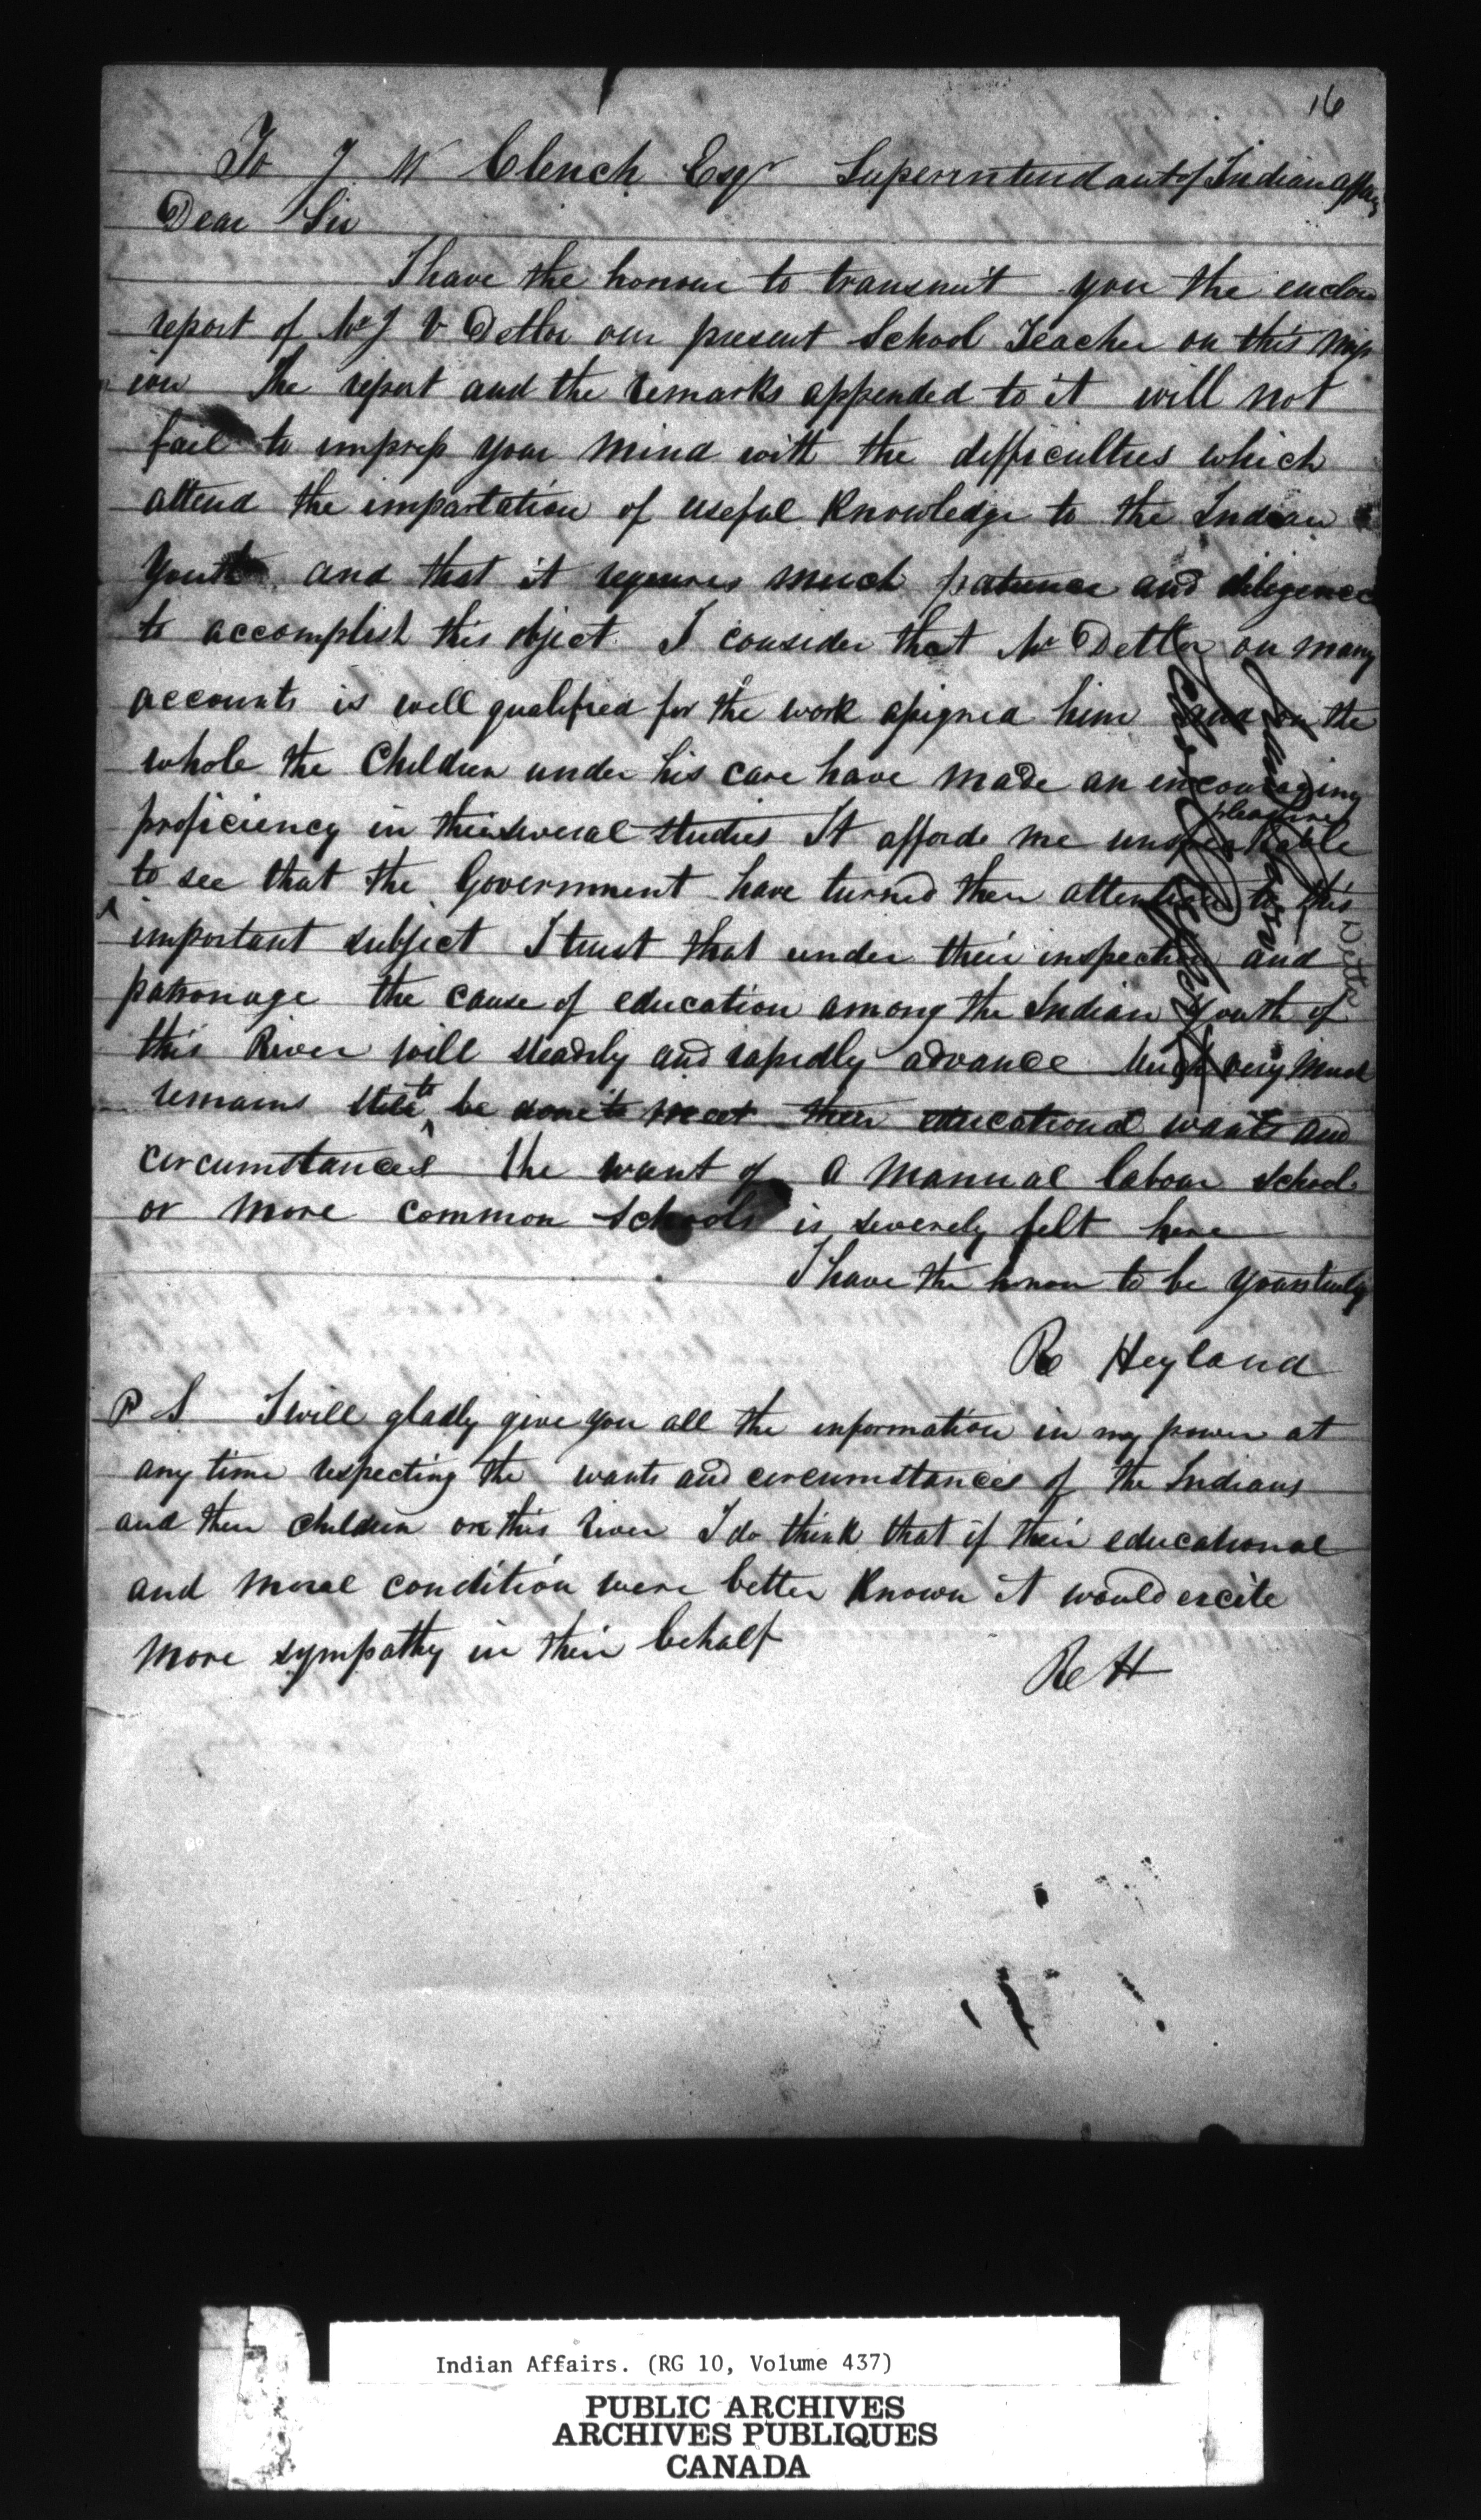 16
To J W Clench Esqr Superintendant of Indian affairs
Dear Sir
I have the honour to transmit you the enclos
report of Mr J V Detlor our present School Teacher on this Miss
ion The report and the remarks appended to it will not
fail to impress your mind with the difficulties which
attend the impartation of useful Knowledge to the Indian
Youth and that it requires much patience and diligence
to accomplish this object. I consider that Mr Detlor on many
accounts is well qualified for the work assigned him and on the
whole the Children under his care have made an encouraging
proficiency in their several studies It affords me unspeakable
pleasure
to see that the Government have turned their attention to this
important subject I trust that under their inspection and
patronage the cause of education among the Indian Youth of
this River will steadily and rapidly advance very much
remains still to be done to meet their educational wants and
circumstances The want of a manual labour school
or more common Schools is severely felt here
I have the honour to be yours truly
R Heyland
P S I will gladly give you all the information in my power at
any time respecting the wants and circumstances of the Indians
and their children on this River I do think that if their educational
and moral condition were better Known it would excite
more sympathy in their behalf
R H
Detlor
Indian Affairs. (RG 10, Volume 437)
PUBLIC ARCHIVES
ARCHIVES PUBLIQUES
CANADA